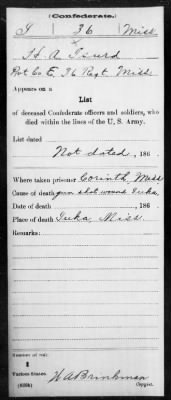 (Confederate.)
I 36 Miss
H. A. Isurd
Pvt Co E, 36 Regt. Miss.
Appears on a
List
of deceased Confederate officers and soldiers, who
died within the lines of the U. S. Army.
List dated
Not dated, 186 .
Where taken prisoner Corinth, Miss
Cause of death gun shot wound Iuka
Date of death , 186 .
Place of death Iuka, Miss.
Remarks:
Number of roll:
1
Various States.
W A Brinkman
Copyist.